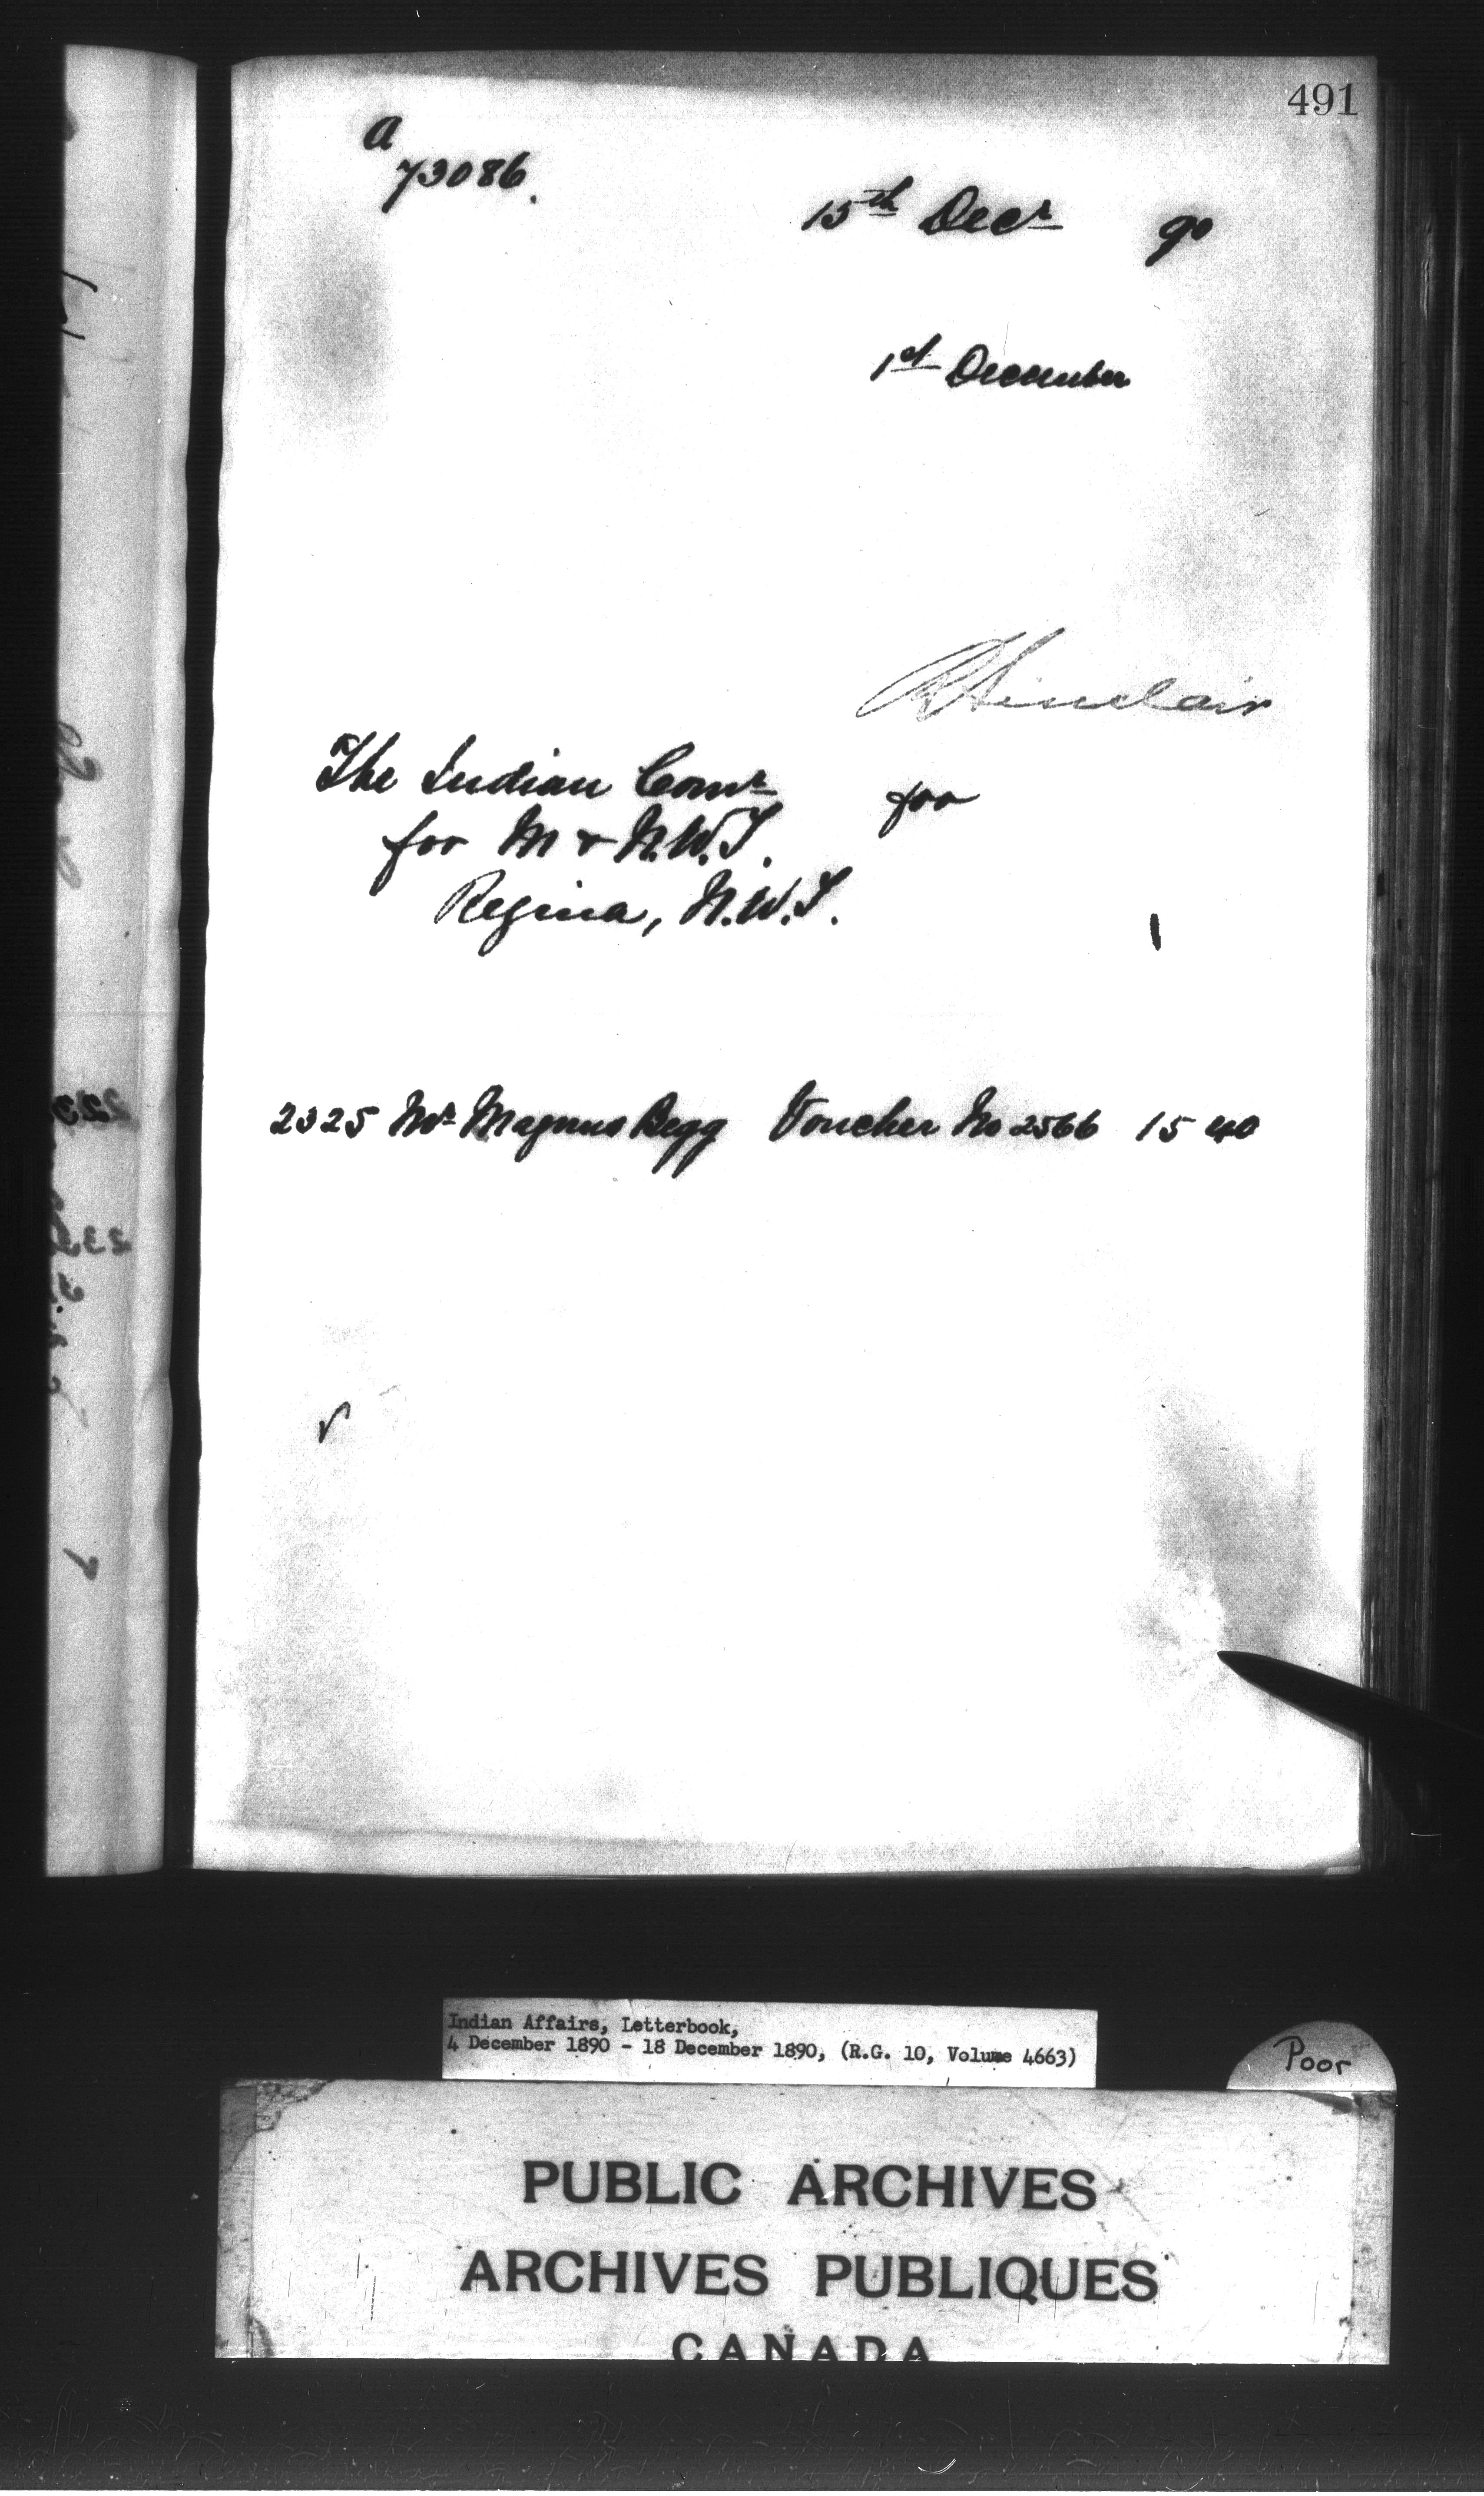 491
a
73086.
15th Decr 90
1st December
R Sinclair
The Indian Comr for
for M & N.W.T.
Regina, N.W.T.
2325 Mr Magnus Begg Voucher No 2566 15 40
Indian Affairs, Letterbook,
4 December 1890 - 18 December 1890, (R.G. 10, Volume 4663)
Poor
PUBLIC ARCHIVES
ARCHIVES PUBLIQUES
CANADA